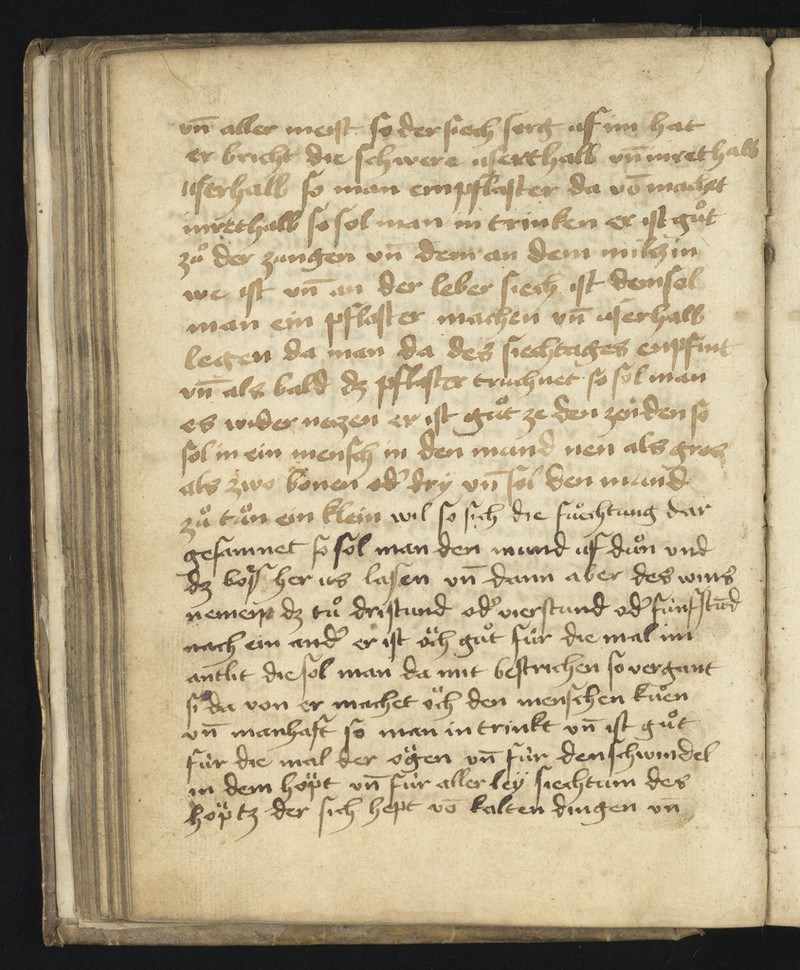 vn̄ aller meist so der siech sorg uf im hat
er bricht die schwere userthalb vn̄ inrethalb
userhalb so man ein pflaster da vō machet
inrethalb so sol man in trinken er ist gůt
zů der zungen vn̄ dem an dem milz in
we ist vn̄ an der leber siech ist dem sol
man ein pflaster machen vn̄ userhalb
legen da man da des siechtages enpfint
vn̄ als bald dz pflaster truchnet so sol man
es wider nezen er ist gůt ze den zenden so
sol in ein mensch in den mund nen als gros
als zwo bonen od' dry vn̄ sol den mund
zů tůn ein klein wil so sich die fůchtung dar
gesamnet so sol man den mund uf důn vnd
dz bös her us lasen vn̄ dann aber des wins
nemen dz tů dristund od' vierstund od' fünfstūd
nach ein and' er ist öch gůt für die mal im
antlit die sol man da mit bestrichen so vergant
si da von er machet öch den menschen kůen
vn̄ manhaft so man in trinkt vn̄ ist gůt
für die mal der ögen vn̄ für den schwindel
in dem höpt vn̄ für aller leÿ siechtum des
höptz der sich hept vō kalten dingen vn̄